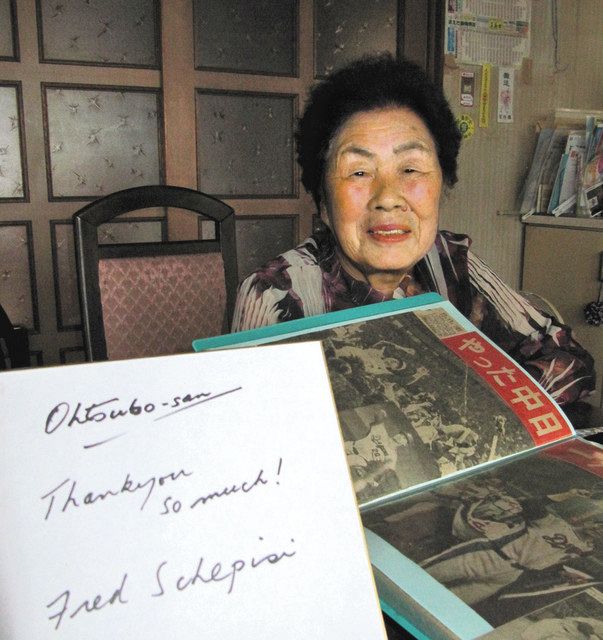 やった中日
Ohtsubo-san
Thankyou
so much!
Fred Schepisi